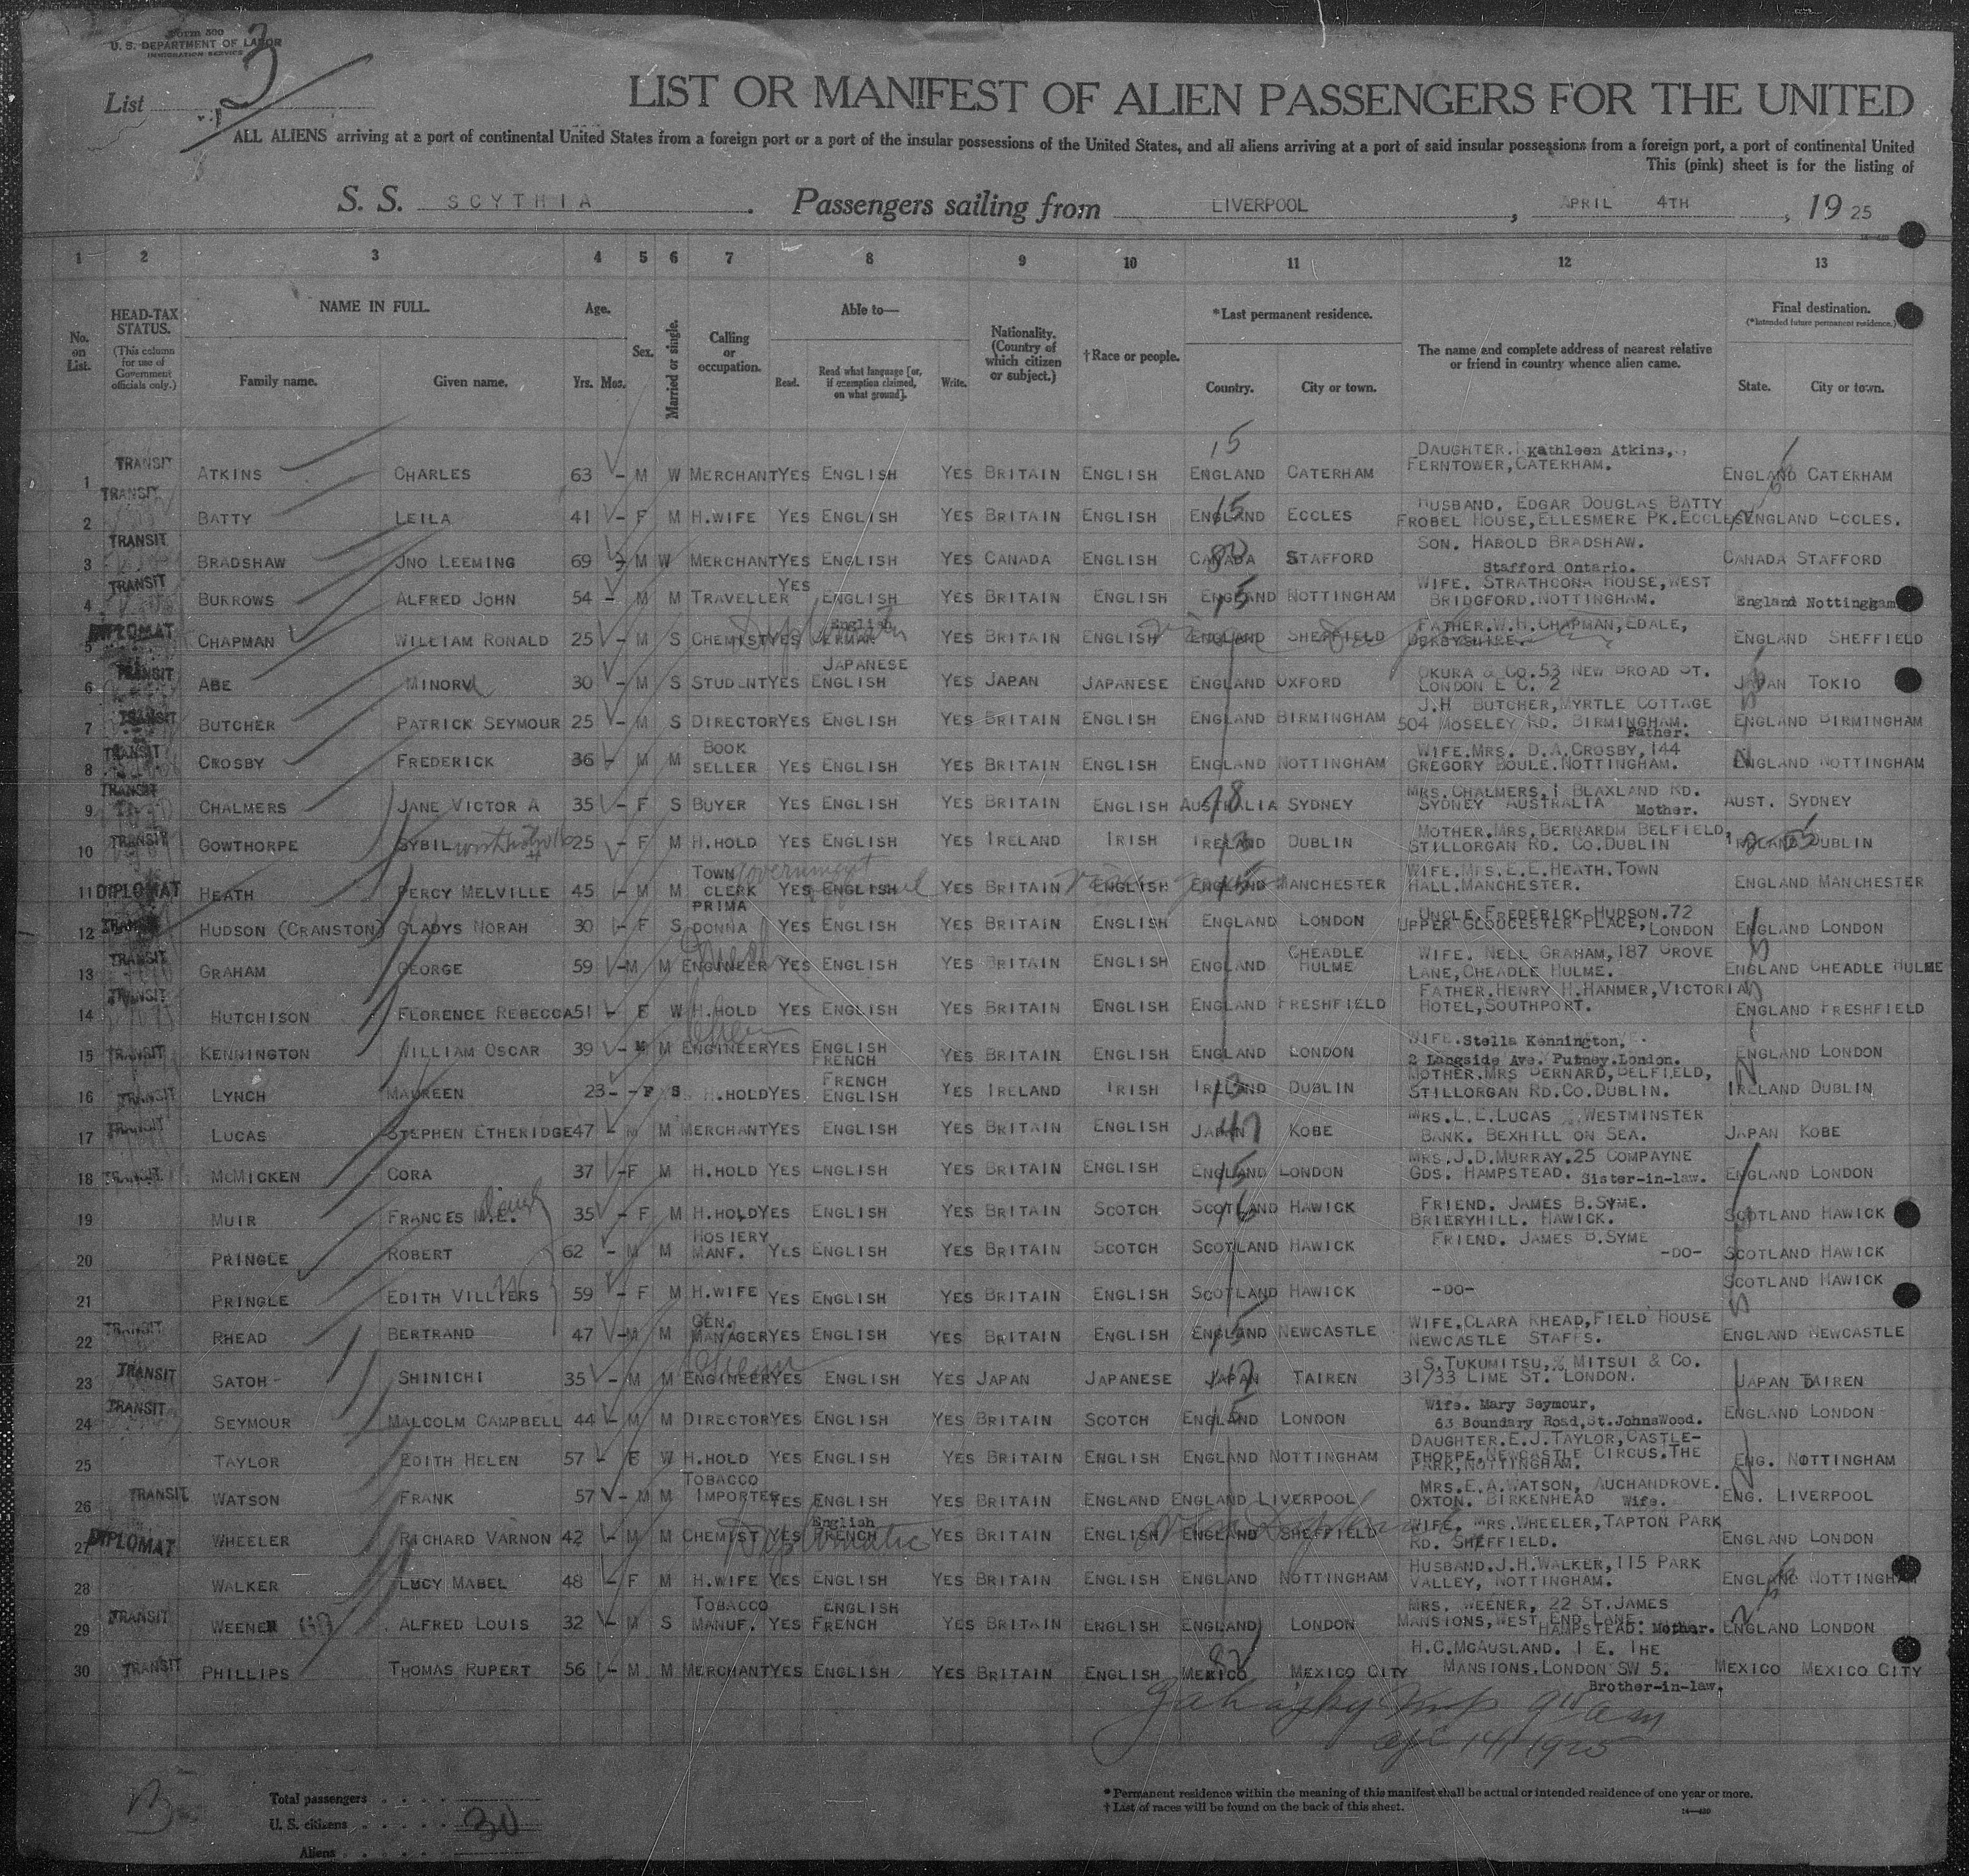 Form 500
U. S. DEPARTMENT OF LABOR
IMMIGRATION SERVICE
List 3
LIST OR MANIFEST OF ALIEN PASSENGERS FOR THE UNITED
ALL ALIENS arriving at a port of continental United States from a foreign port or a port of the insular possessions of the United States, and all aliens arriving at a port of said insular possessions from a foreign port, a port of continental United
This (pink) sheet is for the listing of
S. S. SCYTHIA. Passengers sailing from LIVERPOOL, APRIL 4TH, 19 25
1 2 3 4 5 6 7 8 9 10 11 12 13
No. on List. HEAD-TAX STATUS. (This column for use of Government officials only.) NAME IN FULL. Family name. Given name. Age. Yrs. Mos. Sex. Married or single. Calling or occupation. Able to— Read. Read what language [or, if exemption claimed, on what ground]. Write. Nationality. (Country of which citizen or subject.) †Race or people. *Last permanent residence. Country. City or town. The name and complete address of nearest relative or friend in country whence alien came. Final destination. (*Intended future permanent residence.) State. City or town.
1 TRANSIT ATKINS CHARLES 63 - M W MERCHANT YES ENGLISH YES BRITAIN ENGLISH 15 ENGLAND CATERHAM DAUGHTER. Kathleen Atkins, FERNTOWER, CATERHAM. ENGLAND CATERHAM
2 TRANSIT BATTY LEILA 41 - F M H.WIFE YES ENGLISH YES BRITAIN ENGLISH 15 ENGLAND ECCLES HUSBAND. EDGAR DOUGLAS BATTY FROBEL HOUSE, ELLESMERE PK. ECCLES ENGLAND ECCLES.
3 TRANSIT BRADSHAW JNO LEEMING 69 - M W MERCHANT YES ENGLISH YES CANADA ENGLISH CANADA STAFFORD SON. HAROLD BRADSHAW. Stafford Ontario. CANADA STAFFORD
4 TRANSIT BURROWS ALFRED JOHN 54 - M M TRAVELLER YES ENGLISH YES BRITAIN ENGLISH 15 ENGLAND NOTTINGHAM WIFE. STRATHCONA HOUSE, WEST BRIDGFORD. NOTTINGHAM. England Nottingham
5 DIPLOMAT CHAPMAN WILLIAM RONALD 25 - M S CHEMIST YES English GERMAN YES BRITAIN ENGLISH ENGLAND SHEFFIELD FATHER. W.H. CHAPMAN, EDALE, DERBYSHIRE. ENGLAND SHEFFIELD
6 TRANSIT ABE MINORU 30 - M S STUDENT YES JAPANESE ENGLISH YES JAPAN JAPANESE ENGLAND OXFORD OKURA & CO. 53 NEW BROAD ST. LONDON E C. 2 JAPAN TOKIO
7 TRANSIT BUTCHER PATRICK SEYMOUR 25 - M S DIRECTOR YES ENGLISH YES BRITAIN ENGLISH ENGLAND BIRMINGHAM J.H BUTCHER, MYRTLE COTTAGE 504 MOSELEY RD. BIRMINGHAM. Father. ENGLAND BIRMINGHAM
8 TRANSIT CROSBY FREDERICK 36 - M M BOOK SELLER YES ENGLISH YES BRITAIN ENGLISH ENGLAND NOTTINGHAM WIFE. MRS. D.A. CROSBY, 144 GREGORY BOULE. NOTTINGHAM. ENGLAND NOTTINGHAM
9 TRANSIT CHALMERS JANE VICTOR A 35 - F S BUYER YES ENGLISH YES BRITAIN ENGLISH AUSTRALIA SYDNEY MRS. CHALMERS, 1 BLAXLAND RD. SYDNEY AUSTRALIA Mother. AUST. SYDNEY
10 TRANSIT GOWTHORPE SYBIL 25 - F M H.HOLD YES ENGLISH YES IRELAND IRISH 13 IRELAND DUBLIN MOTHER. MRS. BERNARDM BELFIELD, STILLORGAN RD. CO. DUBLIN IRELAND DUBLIN
11 DIPLOMAT HEATH PERCY MELVILLE 45 - M M TOWN CLERK YES ENGLISH YES BRITAIN ENGLISH 15 ENGLAND MANCHESTER WIFE. MRS. E.E. HEATH. TOWN HALL. MANCHESTER. ENGLAND MANCHESTER
12 TRANSIT HUDSON (CRANSTON) GLADYS NORAH 30 - F S PRIMA DONNA YES ENGLISH YES BRITAIN ENGLISH ENGLAND LONDON UNCLE. FREDERICK HUDSON. 72 UPPER GLOUCESTER PLACE, LONDON ENGLAND LONDON
13 TRANSIT GRAHAM GEORGE 59 - M M ENGINEER YES ENGLISH YES BRITAIN ENGLISH ENGLAND CHEADLE HULME WIFE. NELL GRAHAM, 187 GROVE LANE, CHEADLE HULME. ENGLAND CHEADLE HULME
14 TRANSIT HUTCHISON FLORENCE REBECCA 51 - F W H.HOLD YES ENGLISH YES BRITAIN ENGLISH ENGLAND FRESHFIELD FATHER. HENRY H. HANMER, VICTORIA HOTEL, SOUTHPORT. ENGLAND FRESHFIELD
15 TRANSIT KENNINGTON WILLIAM OSCAR 39 - M M ENGINEER YES ENGLISH FRENCH YES BRITAIN ENGLISH ENGLAND LONDON WIFE. Stella Kennington, 2 Langside Ave. Putney. London. ENGLAND LONDON
16 TRANSIT LYNCH MAUREEN 23 - - F S H.HOLD YES FRENCH ENGLISH YES IRELAND IRISH 13 IRELAND DUBLIN MOTHER. MRS BERNARD, BELFIELD, STILLORGAN RD. CO. DUBLIN. IRELAND DUBLIN
17 TRANSIT LUCAS STEPHEN ETHERIDGE 47 - M M MERCHANT YES ENGLISH YES BRITAIN ENGLISH 47 JAPAN KOBE MRS. L.E. LUCAS % WESTMINSTER BANK. BEXHILL ON SEA. JAPAN KOBE
18 TRANSIT MCMICKEN CORA 37 - F M H.HOLD YES ENGLISH YES BRITAIN ENGLISH 15 ENGLAND LONDON MRS. J.D. MURRAY. 25 COMPAYNE GDS. HAMPSTEAD. Sister-in-law. ENGLAND LONDON
19 MUIR FRANCES M.E. 35 - F M H.HOLD YES ENGLISH YES BRITAIN SCOTCH 16 SCOTLAND HAWICK FRIEND. JAMES B. SYME. BRIERYHILL. HAWICK. SCOTLAND HAWICK
20 PRINGLE ROBERT 62 - M M HOSIERY MANF. YES ENGLISH YES BRITAIN SCOTCH SCOTLAND HAWICK FRIEND. JAMES B. SYME -DO- SCOTLAND HAWICK
21 PRINGLE EDITH VILLIERS 59 - F M H.WIFE YES ENGLISH YES BRITAIN ENGLISH SCOTLAND HAWICK -DO- SCOTLAND HAWICK
22 TRANSIT RHEAD BERTRAND 47 - M M GEN. MANAGER YES ENGLISH YES BRITAIN ENGLISH 15 ENGLAND NEWCASTLE WIFE, CLARA RHEAD, FIELD HOUSE NEWCASTLE STAFFS. ENGLAND NEWCASTLE
23 TRANSIT SATOH SHINICHI 35 - M M ENGINEER YES ENGLISH YES JAPAN JAPANESE 47 JAPAN TAIREN S. TUKUMITSU, % MITSUI & CO. 31/33 LIME ST. LONDON. JAPAN TAIREN
24 TRANSIT SEYMOUR MALCOLM CAMPBELL 44 - M M DIRECTOR YES ENGLISH YES BRITAIN SCOTCH 15 ENGLAND LONDON Wife. Mary Seymour, 63 Boundary Road, St. JohnsWood. ENGLAND LONDON
25 TAYLOR EDITH HELEN 57 - F W H.HOLD YES ENGLISH YES BRITAIN ENGLISH ENGLAND NOTTINGHAM DAUGHTER. E.J. TAYLOR, CASTLE-THORPE, NEWCASTLE CIRCUS. THE PARK, NOTTINGHAM. ENG. NOTTINGHAM
26 TRANSIT WATSON FRANK 57 - M M TOBACCO IMPORTER YES ENGLISH YES BRITAIN ENGLAND ENGLAND LIVERPOOL MRS. E.A. WATSON, AUCHANDROVE. OXTON. BIRKENHEAD Wife. ENG. LIVERPOOL
27 DIPLOMAT WHEELER RICHARD VARNON 42 - M M CHEMIST Diplomatic YES English FRENCH YES BRITAIN ENGLISH ENGLAND SHEFFIELD WIFE. MRS. WHEELER, TAPTON PARK RD. SHEFFIELD. ENGLAND LONDON
28 WALKER LUCY MABEL 48 - F M H.WIFE YES ENGLISH YES BRITAIN ENGLISH ENGLAND NOTTINGHAM HUSBAND. J.H. WALKER, 115 PARK VALLEY, NOTTINGHAM. ENGLAND NOTTINGHAM
29 TRANSIT WEENEN ALFRED LOUIS 32 - M S TOBACCO MANUF. YES ENGLISH FRENCH YES BRITAIN ENGLISH ENGLAND LONDON MRS. WEENER, 22 ST. JAMES MANSIONS, WEST END LANE. HAMPSTEAD. Mother. ENGLAND LONDON
30 TRANSIT PHILLIPS THOMAS RUPERT 56 - M M MERCHANT YES ENGLISH YES BRITAIN ENGLISH 82 MEXICO MEXICO CITY H.C. MCAUSLAND. 1 E. THE MANSIONS. LONDON SW 5. Brother-in-law. MEXICO MEXICO CITY
1925
Total passengers
U. S. citizens 30
Aliens
* Permanent residence within the meaning of this manifest shall be actual or intended residence of one year or more.
† List of races will be found on the back of this sheet.